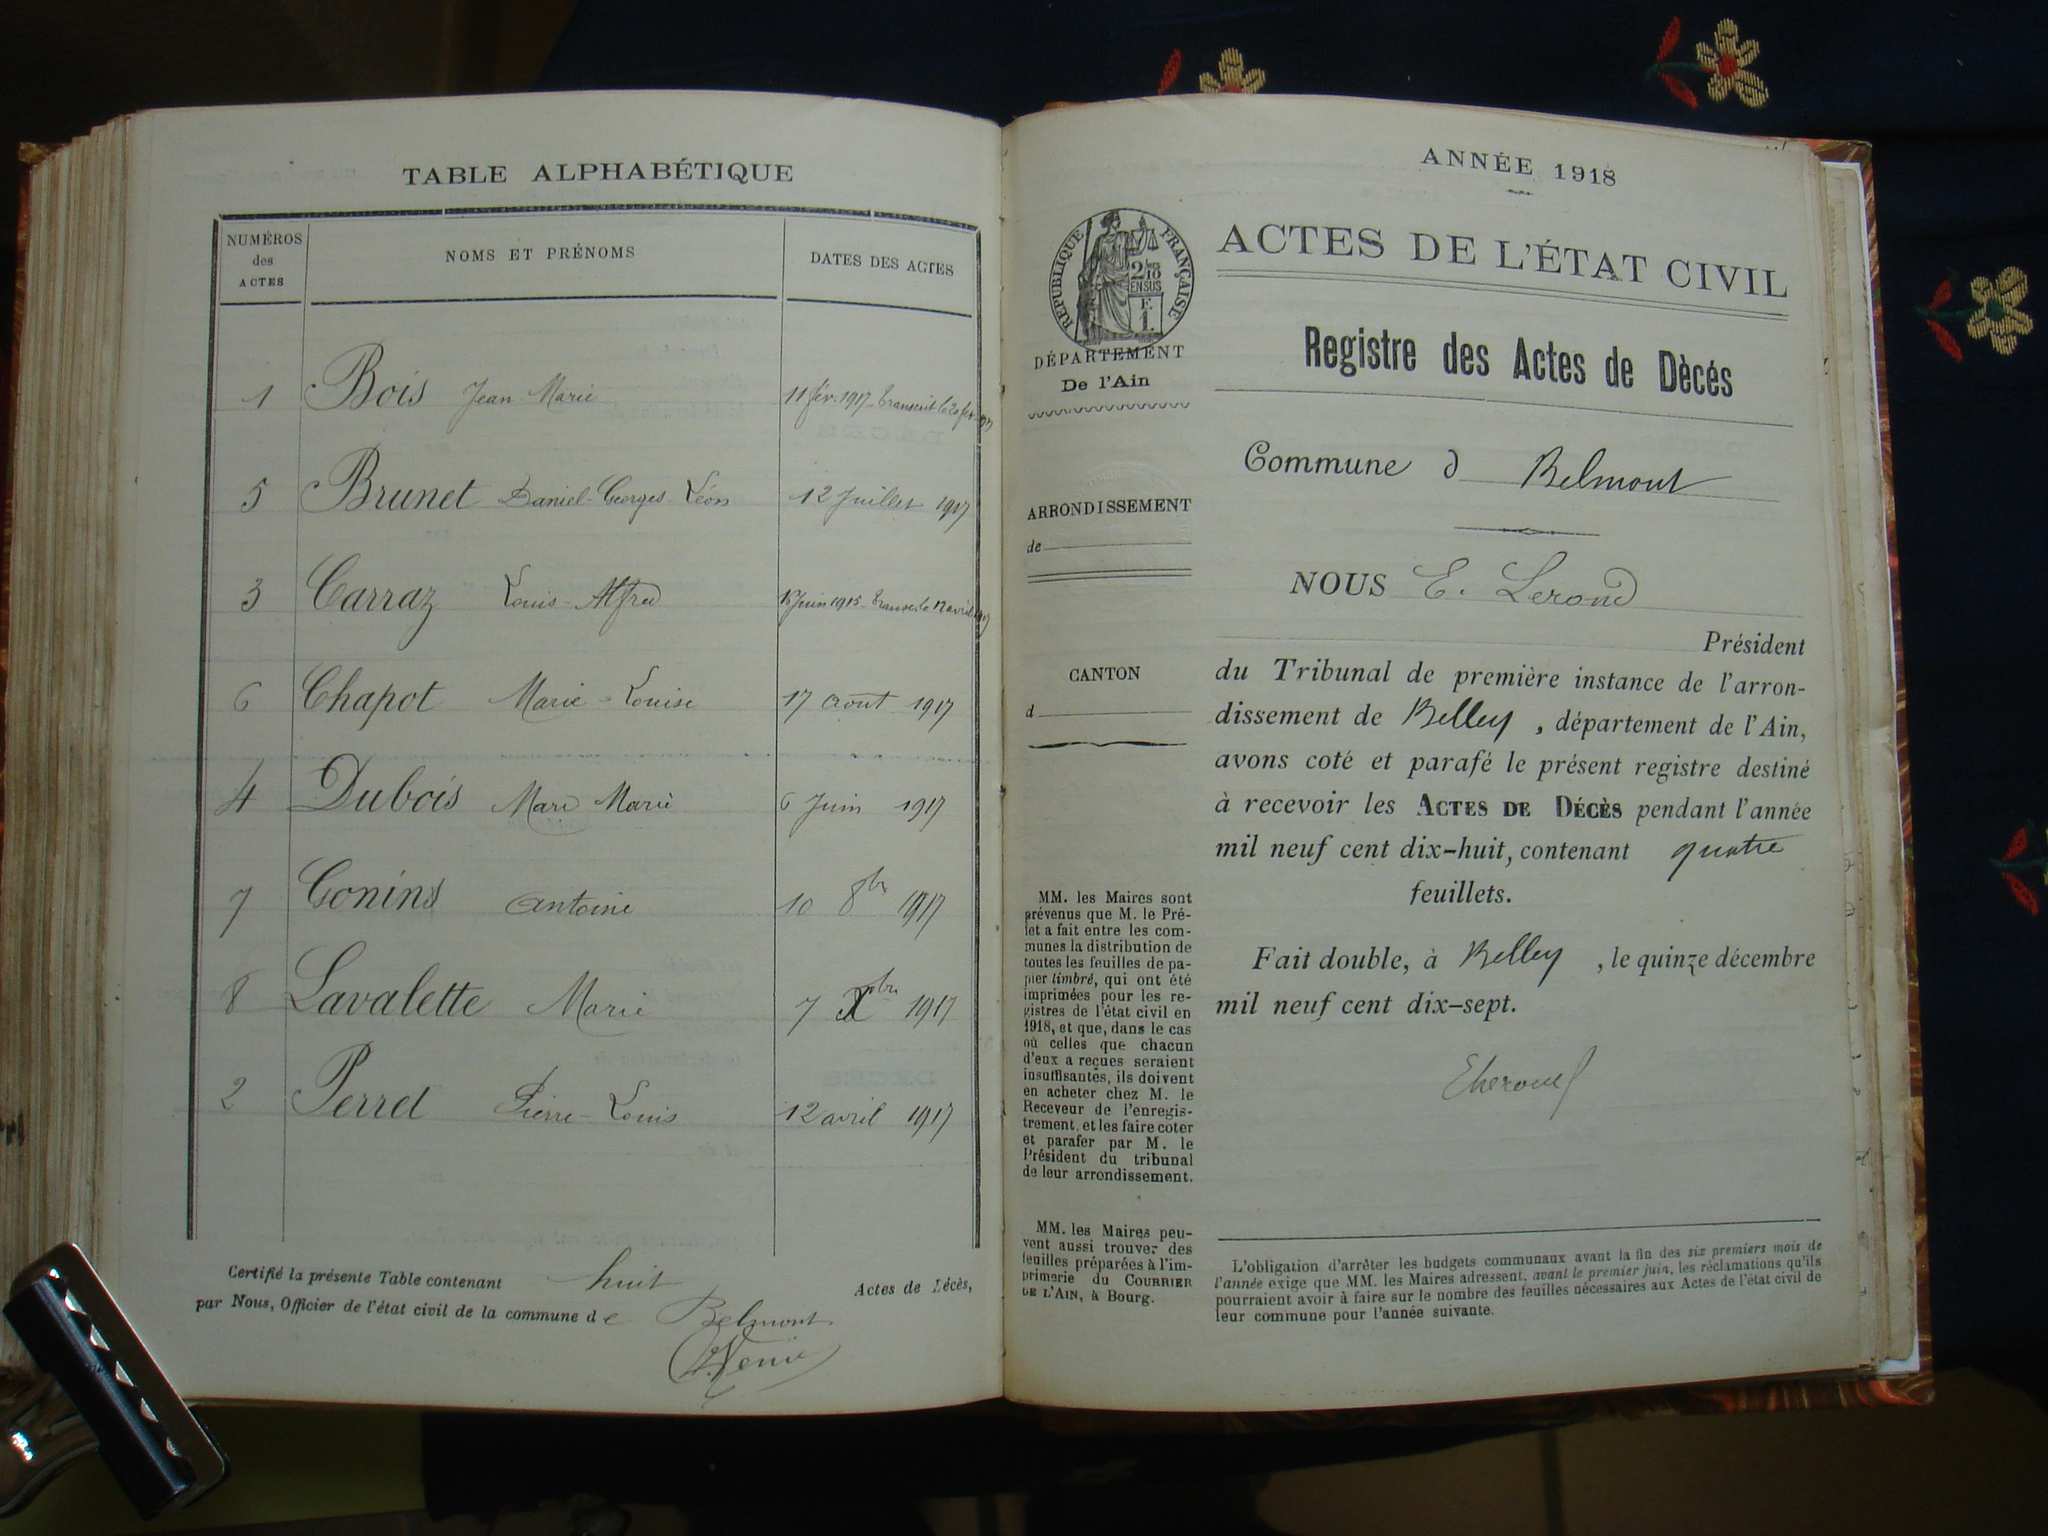 TABLE ALPHABÉTIQUE
NUMÉROS
des
ACTES
NOMS ET PRÉNOMS
DATES DES ACTES
1 Bois Jean Marie 11 fév. 1917 - transcrit le 20 fév.
5 Brunet Daniel-Georges-Léon 12 Juillet 1917
3 Carraz Louis-Alfred Juin 1915 - avril
6 Chapot Marie-Louise 17 aout 1917
4 Dubois Marie 6 Juin 1917
7 Gonind Antoine 10 8bre 1917
8 Lavalette Marie 7 Xbre 1917
2 Perret Pierre-Louis 12 avril 1917
Certifié la présente Table contenant huit Actes de Décès,
par Nous, Officier de l'état civil de la commune de Belmont
ANNÉE 1918
RÉPUBLIQUE FRANÇAISE
2/10
EN SUS
F
1.
DÉPARTEMENT
De l'Ain
ARRONDISSEMENT
de
CANTON
d
MM. les Maires sont
prévenus que M. le Pré-
fet a fait entre les com-
munes la distribution de
toutes les feuilles de pa-
pier timbré, qui ont été
imprimées pour les re-
gistres de l'état civil en
1918, et que, dans le cas
où celles que chacun
d'eux a reçues seraient
insuffisantes, ils doivent
en acheter chez M. le
Receveur de l'enregis-
trement, et les faire coter
et parafer par M. le
Président du tribunal
de leur arrondissement.
MM. les Maires peu-
vent aussi trouver des
feuilles préparées à l'im-
primerie du COURRIER
DE L'AIN, à Bourg.
ACTES DE L'ÉTAT CIVIL
Registre des Actes de Dècés
Commune d Belmont
NOUS E. Lerond
Président
du Tribunal de première instance de l'arron-
dissement de Belley, département de l'Ain,
avons coté et parafé le présent registre destiné
à recevoir les ACTES DE DÉCÈS pendant l'année
mil neuf cent dix-huit, contenant quatre
feuillets.
Fait double, à Belley, le quinze décembre
mil neuf cent dix-sept.
L'obligation d'arrêter les budgets communaux avant la fin des six premiers mois de
l'année exige que MM. les Maires adressent, avant le premier juin, les réclamations qu'ils
pourraient avoir à faire sur le nombre des feuilles nécessaires aux Actes de l'état civil de
leur commune pour l'année suivante.